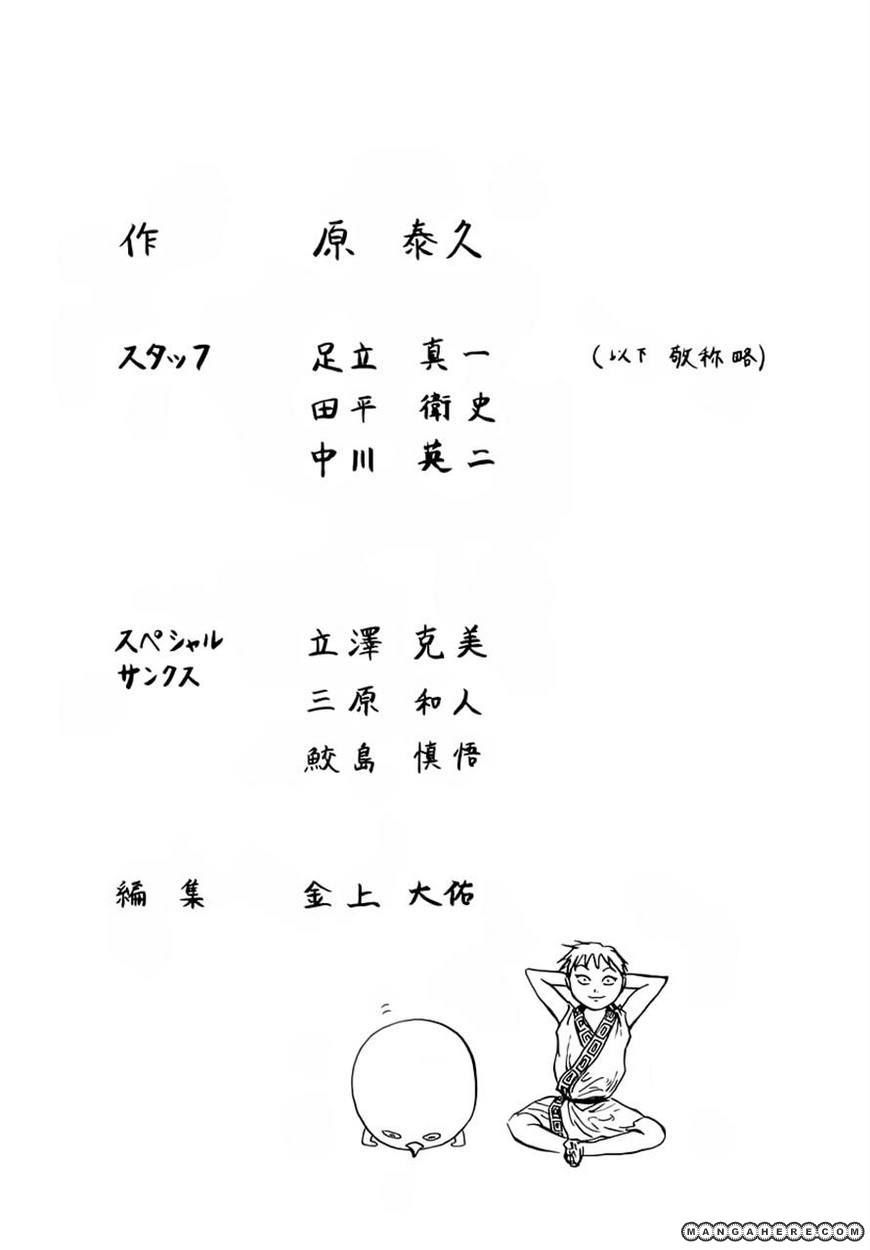 作 原 泰久
スタッフ 足立 真一 (以下 敬称略)
田平 衛史
中川 英二
スペシャル
サンクス
立澤 克美
三原 和人
鮫島 慎悟
編集 金上 大佑
MANGAHERE.COM